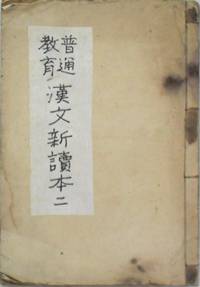 普通
教育
漢文新讀本二